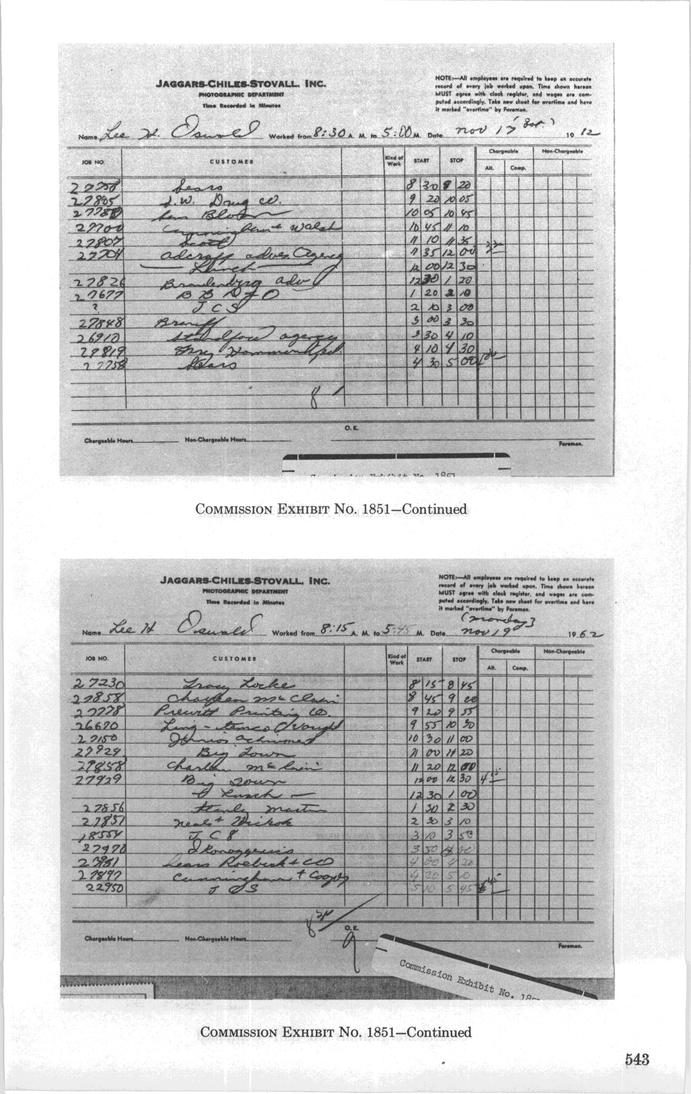 JAGGARS-CHILES-STOVALL, INC.
PHOTOGRAPHIC DEPARTMENT
Time Recorded in Minutes
NOTE:—All employees are required to keep an accurate
record of every job worked upon. Time shown hereon
MUST agree with clock register, and wages are com-
puted accordingly. Take new sheet for overtime and have
it marked "overtime" by Foreman.
Name Lee H. Oswald Worked from 8:30 A. M. to 5:00 M. Date Nov 17 19
JOB NO. CUSTOMER Kind of Work START STOP Chargeable Alt. Comp. Non-Chargeable
27758 Sears 8 30 8 20
27805 J.W. Drug Co. 9 20 10 05
Sam Bloom 10 05 10 45
27700 Cunningham & Walsh 10 45 11 10
27807 Scott 11 10 11 35
27704 Adcraft adver. Agency 11 35 12 00
Lunch 12 00 12 30
27826 Brandenberg adv 12 30 1 20
27677 B B D & O 1 20 2 10
? J C S 2 10 3 00
27848 Braniff 3 00 3 30
26910 agency 3 30 4 10
27819 4 10 4 30
27758 Sears 4 30 5 00
8
O.K.
Chargeable Hours Non-Chargeable Hours Foreman.
COMMISSION EXHIBIT No. 1851—Continued
JAGGARS-CHILES-STOVALL, INC.
PHOTOGRAPHIC DEPARTMENT
Time Recorded in Minutes
NOTE:—All employees are required to keep an accurate
record of every job worked upon. Time shown hereon
MUST agree with clock register, and wages are com-
puted accordingly. Take new sheet for overtime and have
it marked "overtime" by Foreman.
(Monday)
Name Lee H Oswald Worked from 8:15 A. M. to 5:45 M. Date Nov 19 1962
JOB NO. CUSTOMER Kind of Work START STOP Chargeable Alt. Comp. Non-Chargeable
27230 Tracy Locke 8 15 8 45
27858 McClain 8 45 9 20
27778 Prewitt Printing Co. 9 20 9 55
26670 Ling-Temco Vought 9 55 10 30
27150 10 30 11 00
27929 Big Town 11 00 11 20
27858 Charlen McClain 11 20 12 00
27929 Big Town 12 00 12 30
Lunch 12 30 1 00
27856 Martin 1 30 2 30
27851 Neal & Hickok 2 30 3 10
18554 J C S 3 10 3 50
27970 3 50 4 00
27951 Sears Roebuck & Co 4 00 4 20
27897 Cunningham & Cooper 4 20 5 10
22950 J C S 5 10 5 45
9
O.K.
Chargeable Hours Non-Chargeable Hours Foreman.
Commission Exhibit No.
COMMISSION EXHIBIT No. 1851—Continued
543